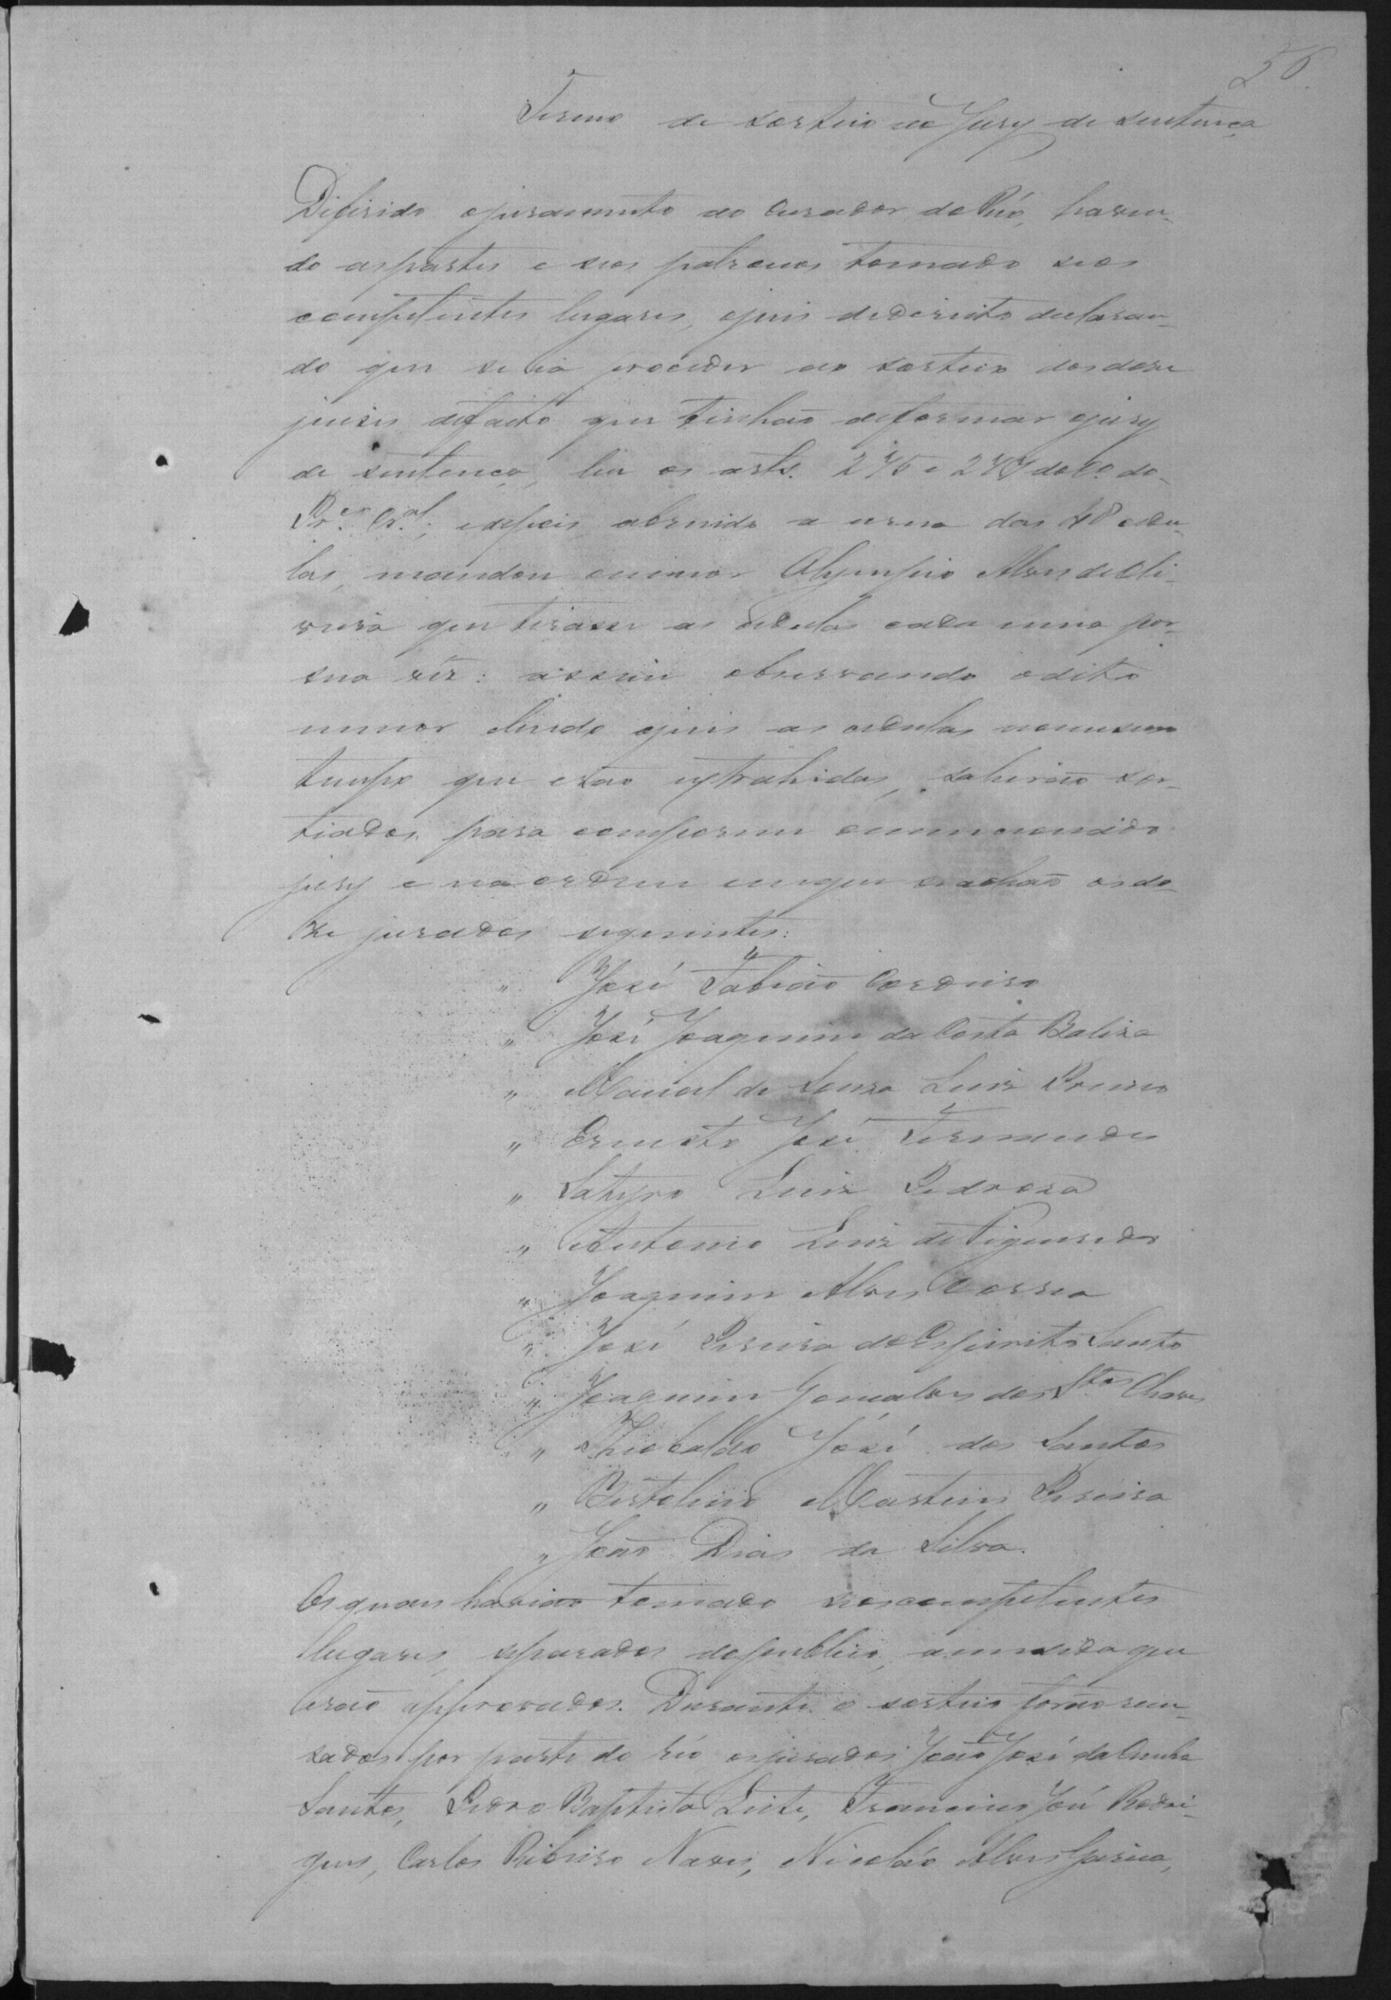 56
Termo de sorteio do Jury de sentença
Diferido o juramento ao Curador do Réo, haven-
do as partes e seos patronos tomado seos
competentes lugares, o juis de direito declaran-
do que se ia proceder ao sorteio dos doze
juises de facto que tinhão de formar o jury
de sentença, leu os arts. 275 e 277 do Co. do
Pr.es Cr.al; e depois abrindo a urna das 48 cedu-
las, mandou o menor Olympio Alves de Oli-
veira que tirasse as cedulas cada uma por
sua vez: assim observando o dito
menor e lendo o juis as cedulas no mesmo
tempo que erão extrahidas, sahirão sor-
tiados para comporem o mencionado
jury e na ordem em que se achão os do-
ze jurados seguintes:
" José Fabião Cordeiro
" José Joaquim da Costa Baliza
" Manoel de Souza Luis Primo
" Ernesto José Fernandes
" Satyro Luiz Pedroza
" Antonio Luiz de Figueredo
" Joaquim Alves Correa
" José Pereira do Espirito Santo
" Joaquim Gonçalves dos Stos Chaves
" Theobaldo José dos Santos
" Bertolino Martins Pereira
" João Dias da Silva.
Os quaes havião tomado seos competentes
lugares, separados do publico, a medida que
erão approvados. Durante o sorteio forão recu-
sados por parte do réo os jurados João José da Cunha
Santos, Pedro Baptista Leite, Francisco José Rodri-
gues, Carlos Ribeiro Naves, Nicoláo Alves